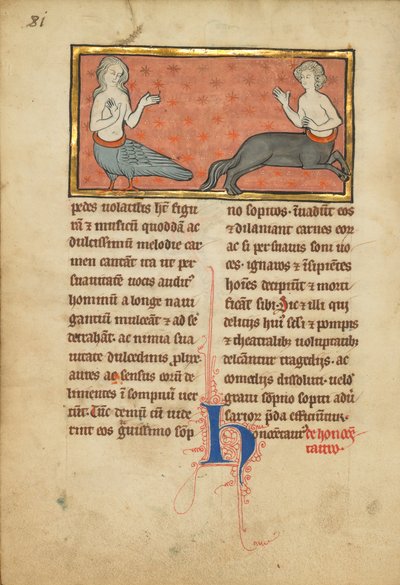 81
pedes volatilis hn̄t figu
rā ⁊ musicum quoddā ac
dulcissimū melodie car
men cantāt ita ut per
suauitatē uocis auditꝰ
hominum a longe naui
gantiū mulceāt ⁊ ad se
detrahāt. ac nimia sua
uitate dulcedinis plixe
aures ac sensus eorū de
linientes ī sompnū uer
tūt. Tūc demū cū uide
rint eos guissimo sop
no sopitos. īuadūt eos
⁊ dilaniant carnes eor
ac si persuasis soni uo
ces. ignaros ⁊ īsipiētes
hoēs decipiūt ⁊ morti
ficāt sibi. Sic ⁊ illi qui
delicijs huiꝰ scli ⁊ pompis
⁊ theatralibꝰ voluptatibꝰ
delectātur tragedijs. ac
comedijs dissoluti. uelꝰ
graui sopno sopiti adū
sarior pda efficiuntur.
honocentaurꝰ de honocē
tauro.